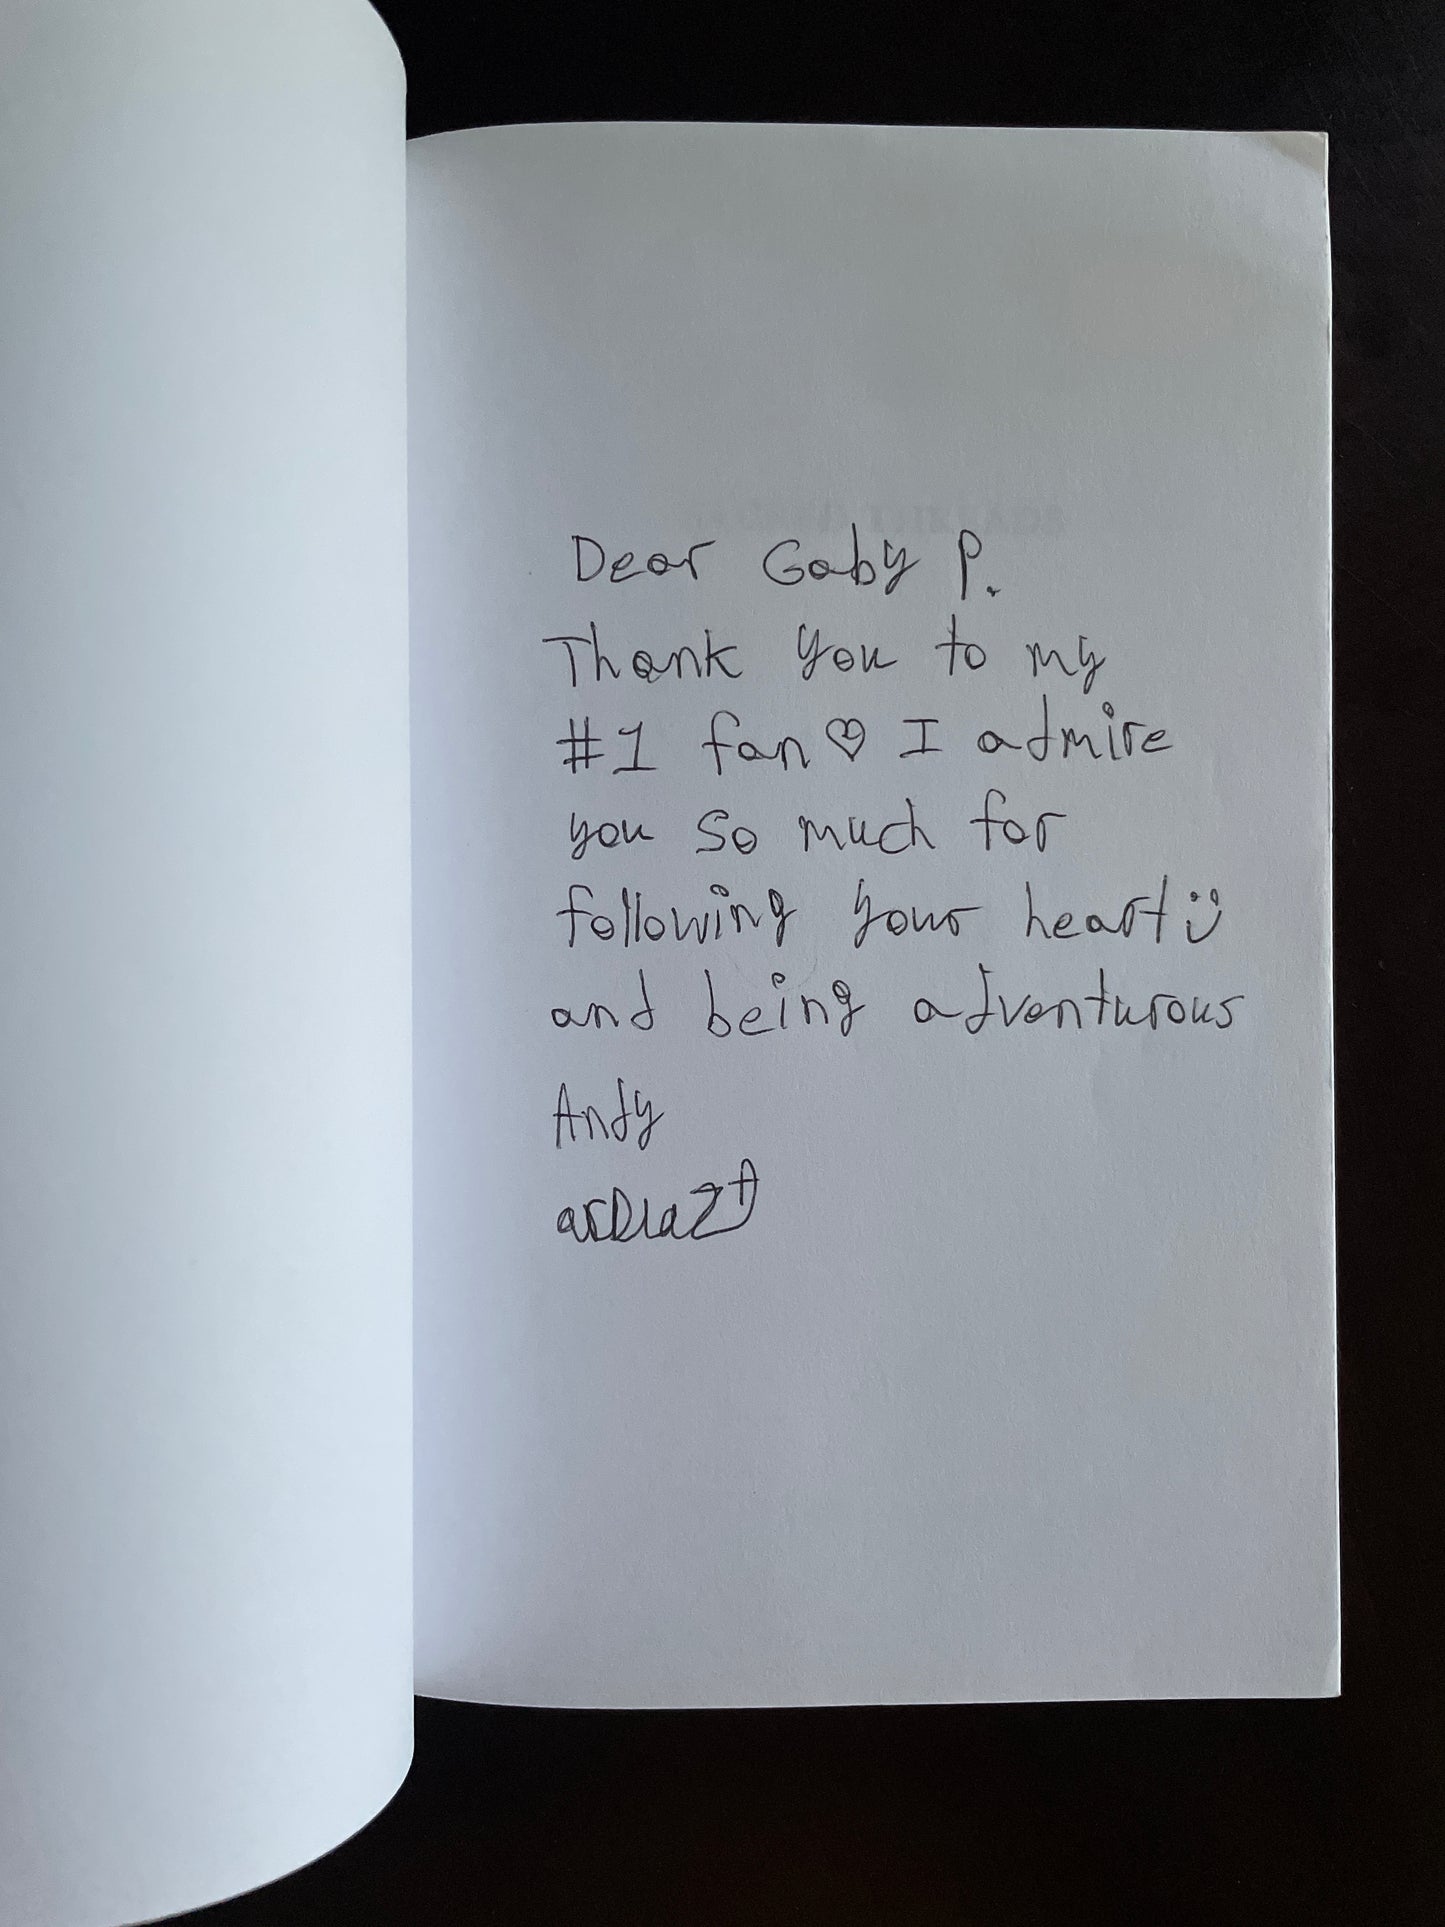 Dear Gaby P.
Thank you to my
#1 fan♡ I admire
you so much for
following your heart :)
and being adventurous
Andy